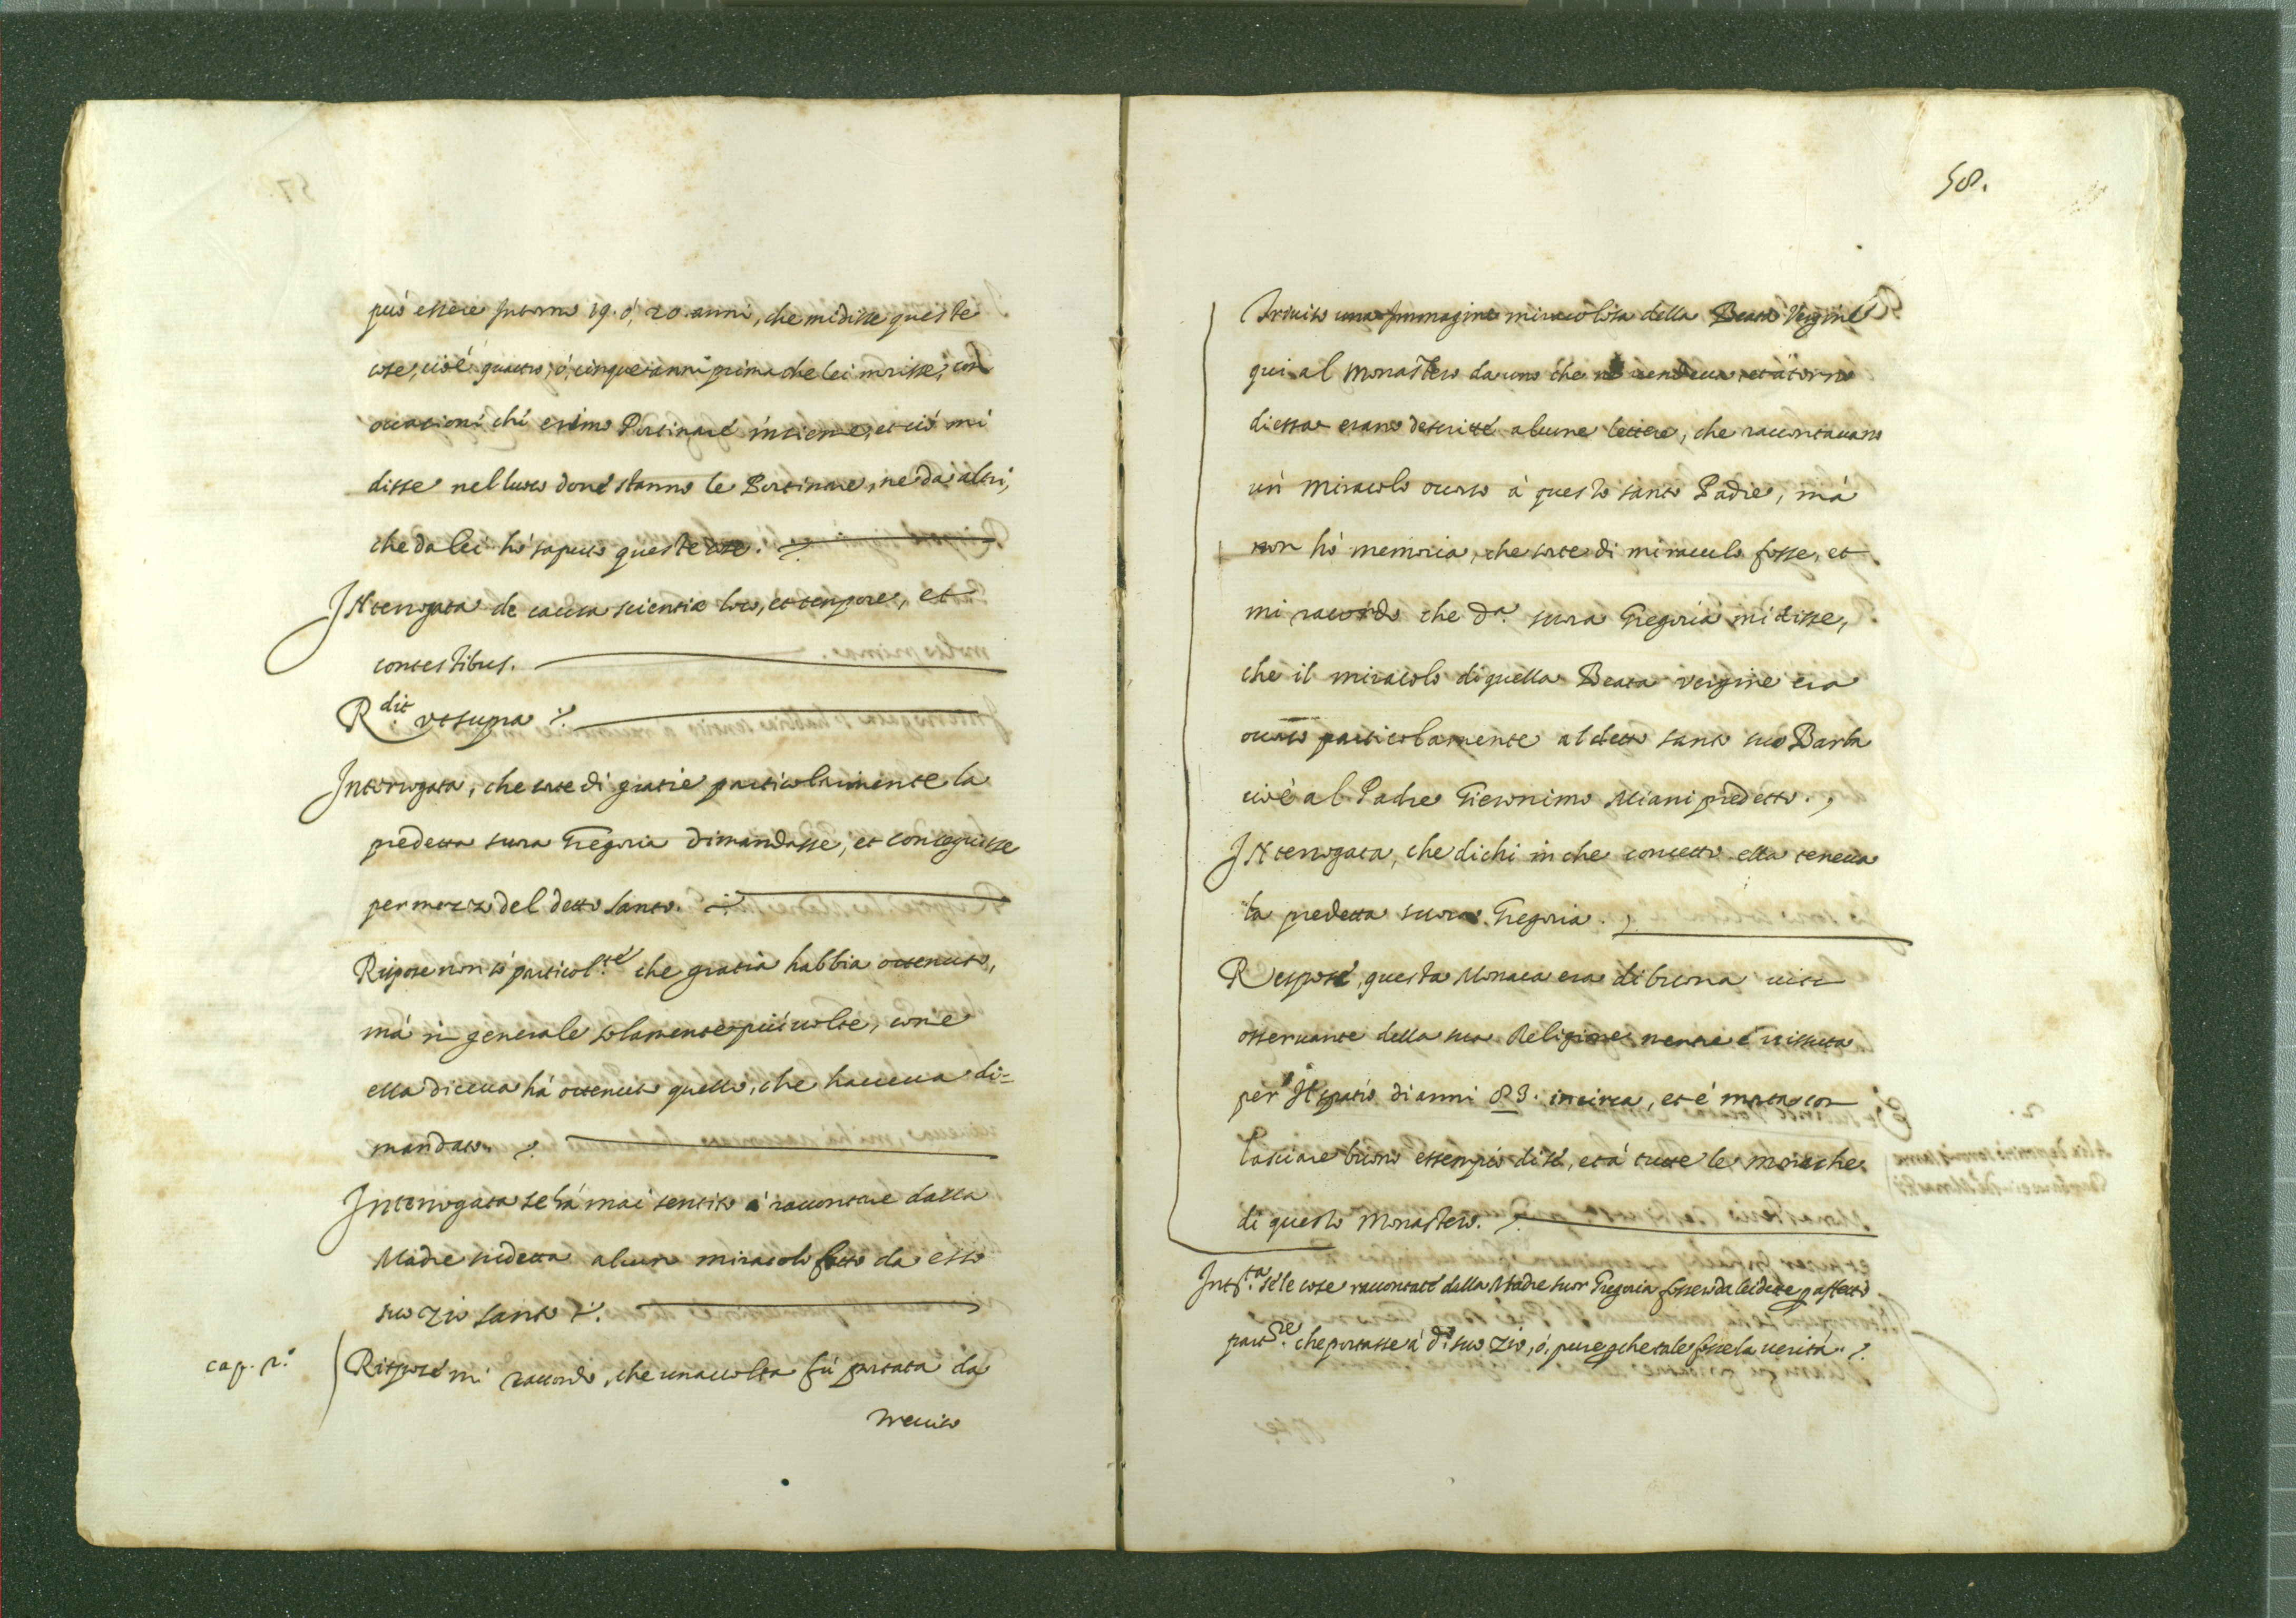 può essere intorno 19. ó, 20. anni, che mi disse queste
cose, cioè quattro, ó, cinque anni prima che lei morisse, con
occasioni chi erimo Portinare insieme, et ciò mi
disse nel luoco dove stanno le Portinare, ne da altri,
che da lei hò saputo queste cose.
Interrogata de causa scientiæ loco, et tempore, et
contestibus.
Rdit ut supra
Interrogata, che sorte di gratie particolarmente la
predetta suora Gregoria dimandasse, et conseguisse
per mezzo del detto santo.
Rispose non só particolte che gratia habbia ottenuto,
má in generale solamente più volte, come
ella diceva há ottenuto quello, che haveva di=
mandato.
Interrogata se há mai sentito á raccontare dalla
Madre sudetta alcun miracolo fatto da esso
suo Zio santo
cap. 2.º
Rispose mi raccordo, che una volta fú portata da
Treviso
58.
Treviso una Immagine miracolosa della Beata Vergine
qui al Monastero da uno che ne vendeva, et atorno
di essa erano descritté alcune lettere, che raccontavano
un miracolo ocorso à questo santo Padre, má
non hò memoria, che sorte di miracolo fosse, et
mi racordo che da. suora Gregoria mi disse,
che il miracolo di quella Beata vergine era
ocorso particolarmente al detto santo suo Barba
cioè al Padre Gieronimo Miani predetto.
Interrogata, che dichi in che concetto ella teneva
la predetta suora Gregoria.
Respose, questa Monaca era di buona vita
osservante della sua Religione mentre é vissuta
per il spatio di anni 83. incirca, et é morta con
lasciare buono essempio di sé, et á tutte le monache
di questo Monastero.
Intta. se le cose raccontate della Madre suor Gregoria fossero da lei dette p affetto
partre. che portasse á do suo Zio, ó, pure pche tale fosse la verità.